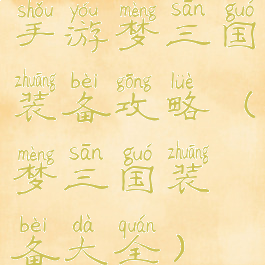 shǒu yóu mèng sān guó
手游梦三国
zhuāng bèi gōng lüè
装备攻略（
mèng sān guó zhuāng
梦三国装
bèi dà quán
备大全）